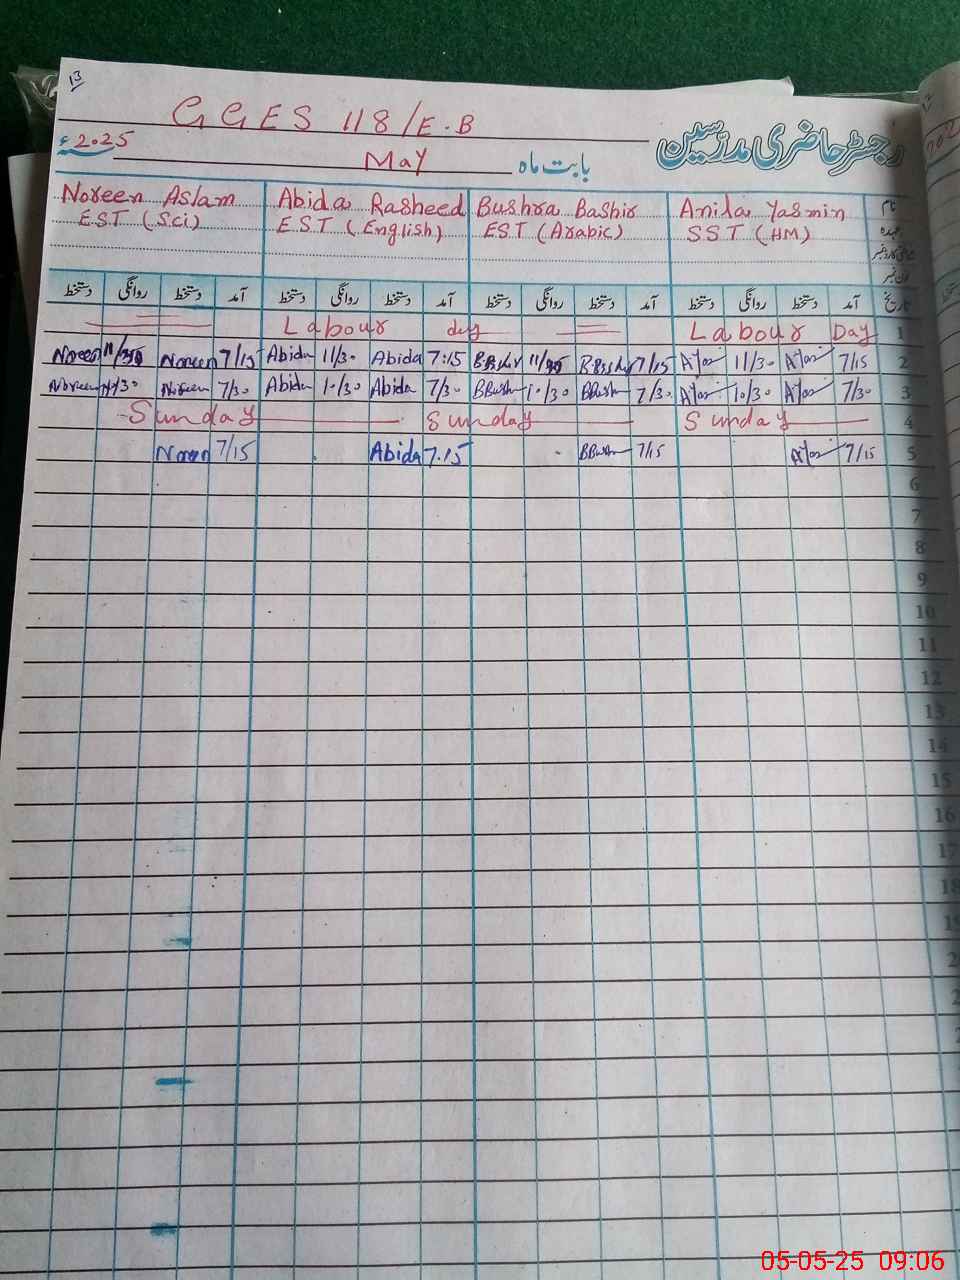 13
GGES 118/E.B
رجسٹر حاضری مدرسین
2025ء
بابت ماہ May
Noreen Aslam Abida Rasheed Bushra Bashir Anila Yasmin نام
EST (Sci) EST (English) EST (Arabic) SST (HM) عہدہ
دستخط روانگی دستخط آمد دستخط روانگی دستخط آمد دستخط روانگی دستخط آمد دستخط روانگی دستخط آمد تاریخ
Labour day Labour Day 1
Noreen Noreen 7/15 Abida 11/30 Abida 7:15 7/15 11/30 7/15 2
Noreen Noreen 7/30 Abida 10/30 Abida 7/30 BBush 10/30 BBush 7/30 10/30 7/30 3
Sunday Sunday Sunday 4
Noreen 7/15 Abida 7:15 BBush 7/15 7/15 5
6
7
8
9
10
11
12
13
14
15
16
17
18
05-05-25 09:06